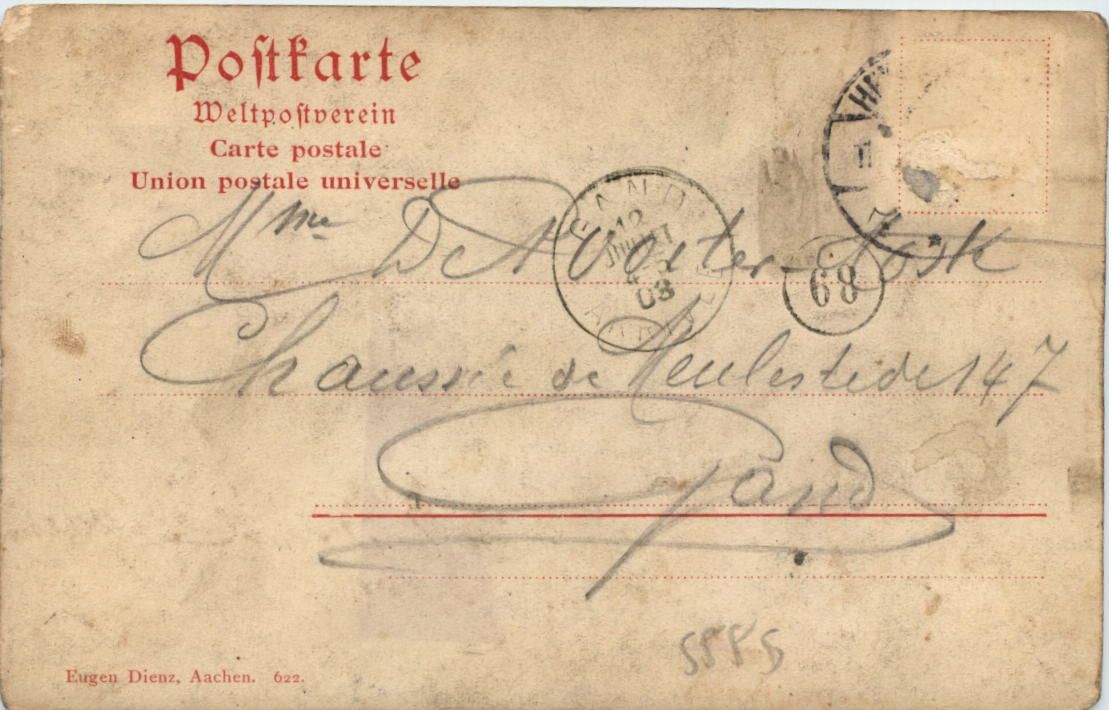 Postkarte
Weltpostverein
Carte postale
Union postale universelle
Mme De
Chaussée de Meulestede 147
Gand
GAND
12
JUILLET
03
68
5885
Eugen Dienz, Aachen. 622.